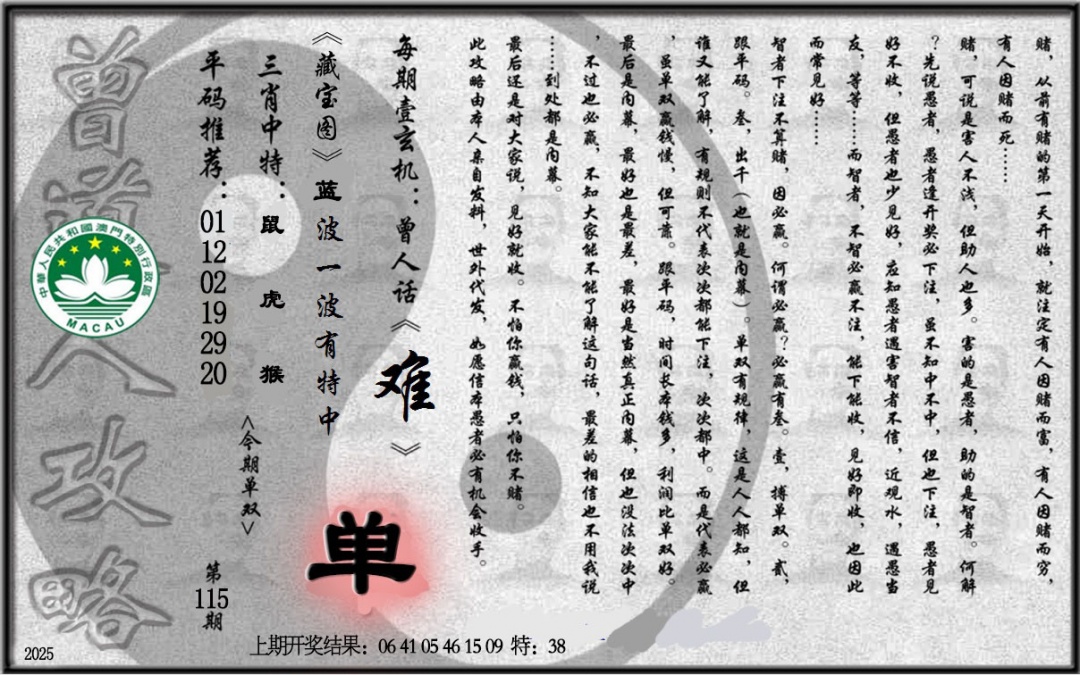 赌，从前有赌的第一天开始，就注定有人因赌而富，有人因赌而穷，
有人因赌而死……
赌，可说是害人不浅，但助人也多。害的是愚者，助的是智者。何解
？先说愚者，愚者逢开奖必下注，虽不知中不中，但也下注，愚者见
好不收，但愚者也少见好，应知愚者遇害智者不信，近观水，遇愚当
友，等等……而智者，不智必赢不注，能下能收，见好即收，也因此
而常见好……
智者下注不算赌，因必赢。何谓必赢？必赢有叁。壹，搏单双。贰，
跟平码。叁，出千（也就是内幕）。单双有规律，这是人人都知，但
谁又能了解，有规则不代表次次都能下注，次次都中。而是代表必赢
，虽单双赢钱慢，但可靠。跟平码，时间长本钱多，利润比单双好。
最后是内幕，最好也是最差，最好是当然真正内幕，但也没法次次中
，不过也必赢，不知大家能不能了解这句话，最差的相信也不用我说
……到处都是内幕。
最后还是对大家说，见好就收。不怕你赢钱，只怕你不赌。
此攻略由本人亲自发料，世外代发，如愿信本愚者必有机会收手。
每期壹玄机：曾人话《难》
《藏宝图》蓝波一波有特中
单
三肖中特：鼠 虎 猴
<今期单双>
平码推荐：01 12 02 19 29 20
第115期
曾道人攻略
中華人民共和國澳門特別行政區
MACAU
上期开奖结果：06 41 05 46 15 09 特：38
2025